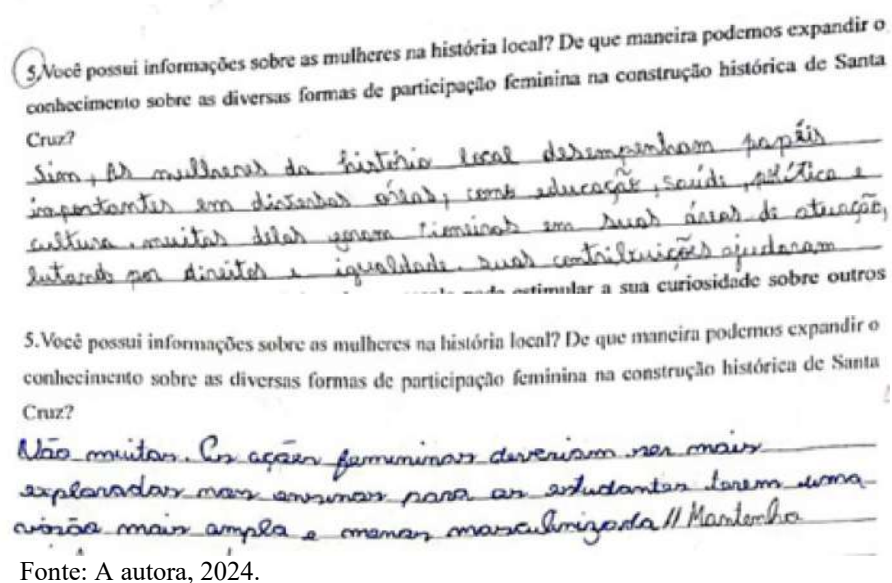 5.Você possui informações sobre as mulheres na história local? De que maneira podemos expandir o
conhecimento sobre as diversas formas de participação feminina na construção histórica de Santa
Cruz?
Sim, As mulheres da história local desempenham papéis
importantes em diversas áreas, como educação, saúde, política e
cultura. muitas delas foram em suas áreas de atuação,
lutando por direitos e igualdade. suas contribuições ajudaram
estimular a sua curiosidade sobre outros
5.Você possui informações sobre as mulheres na história local? De que maneira podemos expandir o
conhecimento sobre as diversas formas de participação feminina na construção histórica de Santa
Cruz?
Não muitas. As ações femininas deveriam ser mais
exploradas nos ensinos para os estudantes terem uma
visão mais ampla e menos masculinizada // Mantenha
Fonte: A autora, 2024.